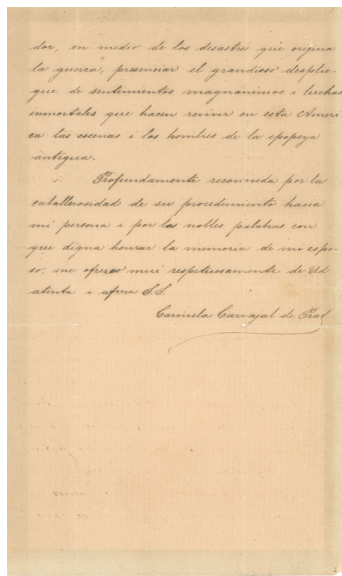 dor, en medio de los desastres que origina
la guerra, presenciar el grandioso desplie-
gue de sentimientos magnánimos i luchas
inmortales que hacen revivir en esta Améri
ca las escenas i los hombres de la epopeya
antigua.
Profundamente reconocida por la
caballerosidad de su procedimiento hacia
mi persona i por las nobles palabras con
que digna honrar la memoria de mi espo-
so, me ofrezco mui respetuosamente de Ud
atenta i afma S.S.
Carmela Carvajal de Prat